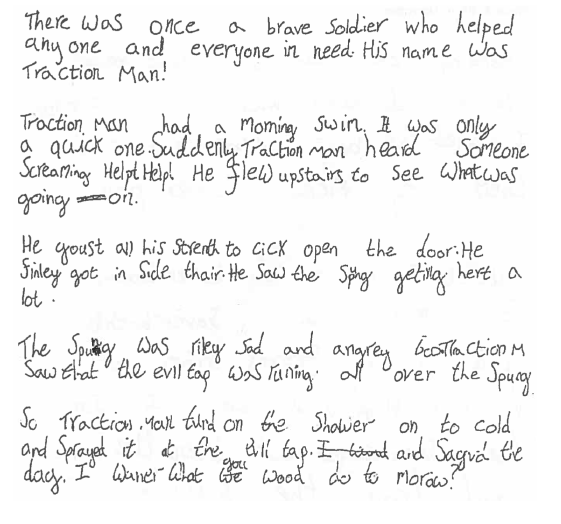 There was once a brave Soldier who helped
any one and everyone in need. His name was
Traction Man!
Traction Man had a Morning Swim. It was only
a quick one. Suddenly Traction Man heard Someone
Screaming Help! Help! He flew upstairs to see what was
going on.
He youst all his Strenth to cick open the door. He
finley got in Side thair. He Saw the Spug geting hert a
lot.
The Spug was riley Sad and angrey Traction M
Saw that the evil tap was runing all over the Spung
So Traction Man turd on the Shower on to cold
and Sprayed it at the evil tap. I and Sagvd the
day. I Wuner what you wood do to morow?